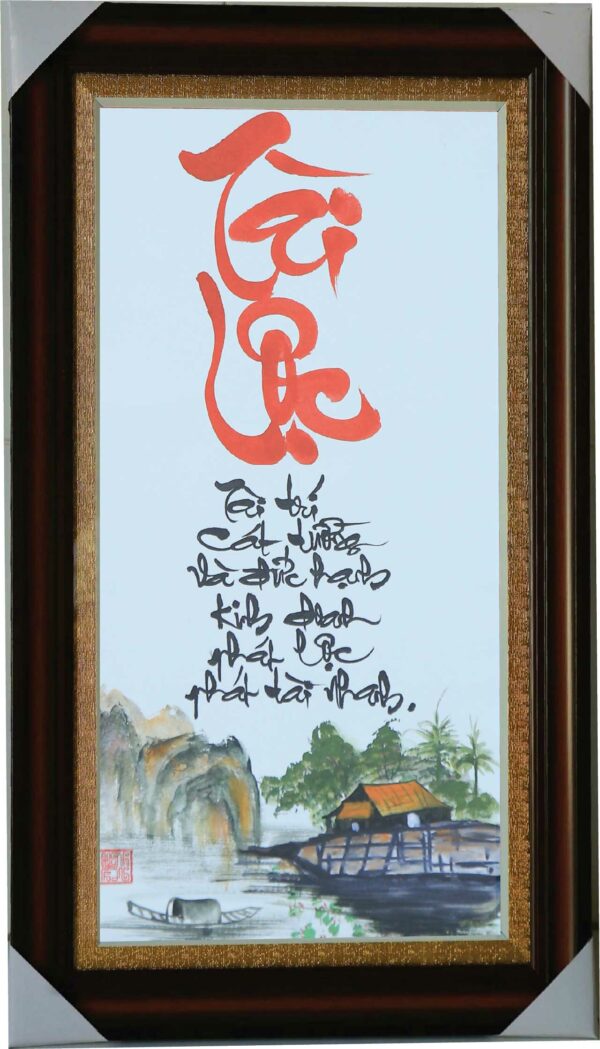 Tài
Lộc
Tài trí
Cát tường
Và đức hạnh
Kinh doanh
phát lộc
phát tài nhanh.